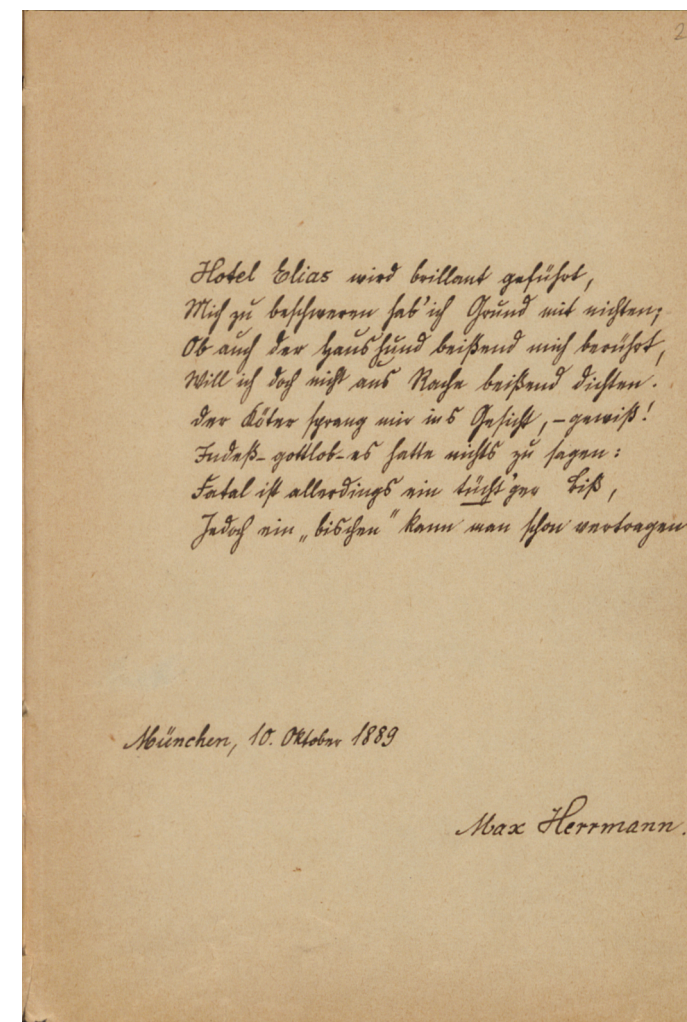 2
Hotel Elias wird brillant geführt,
Mich zu beschweren hab' ich Grund mit nichten;
Ob auch der Haushund beißend mich berührt,
Will ich doch nicht aus Rache beißend dichten.
Der Köter sprang mir ins Gesicht, – gewiß!
Indeß – gottlob – es hatte nichts zu sagen:
Fatal ist allerdings ein tücht'ger Biß,
Jedoch ein „bischen" kann man schon vertragen
München, 10. Oktober 1889
Max Herrmann.